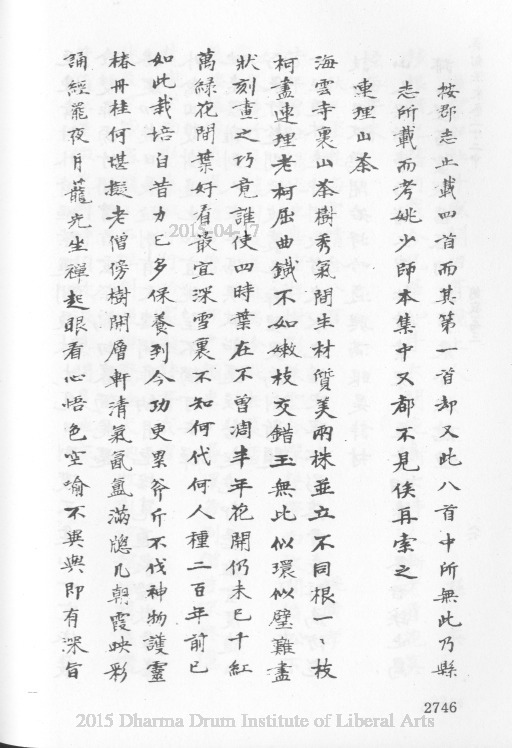 按郡志止載四首而其第一首却又此八首中所無此乃縣
志所載而考姚少師本集中又都不見俟再索之
連理山茶
海雲寺裏山茶樹秀氣間生材質美兩株並立不同根一一枝
柯盡連理老柯屈曲鐵不如嫩枝交錯玉無比似環似璧難畫
狀刻畫之巧竟誰使四時葉在不曾凋半年花開仍未已千紅
萬綠花間葉好看最宜深雪裏不知何代何人種二百年前已
如此栽培自昔力已多保養到今功更累斧斤不伐神物護靈
椿丹桂何堪擬老僧傍樹開層軒清氣氤氳滿牕几朝霞映彩
誦經罷夜月籠光坐禪起眼看心悟色空喻不異與即有深旨
2746
2015-04-17
2015 Dharma Drum Institute of Liberal Arts